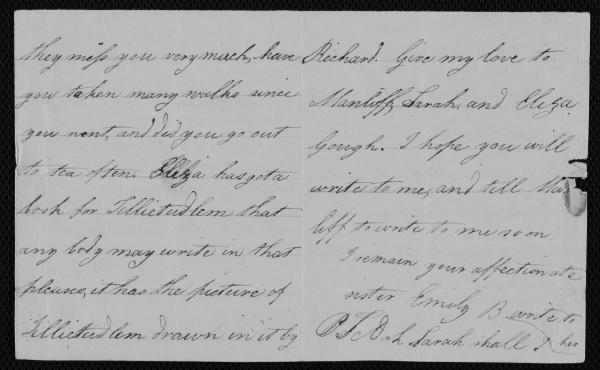 they miss you very much, have
you taken many walks since
you went, and did you go out
to tea often. Eliza has got a
book for Tillietudlem that
any body may write in that
pleases, it has the picture of
Tillietudlem drawn in it by
Richard. Give my love to
Manliff, Sarah, and Eliza
Gough. I hope you will
write to me, and tell Man
liff to write to me soon
I remain your affectionate
sister Emily B
P.S. Ask Sarah shall I write to her